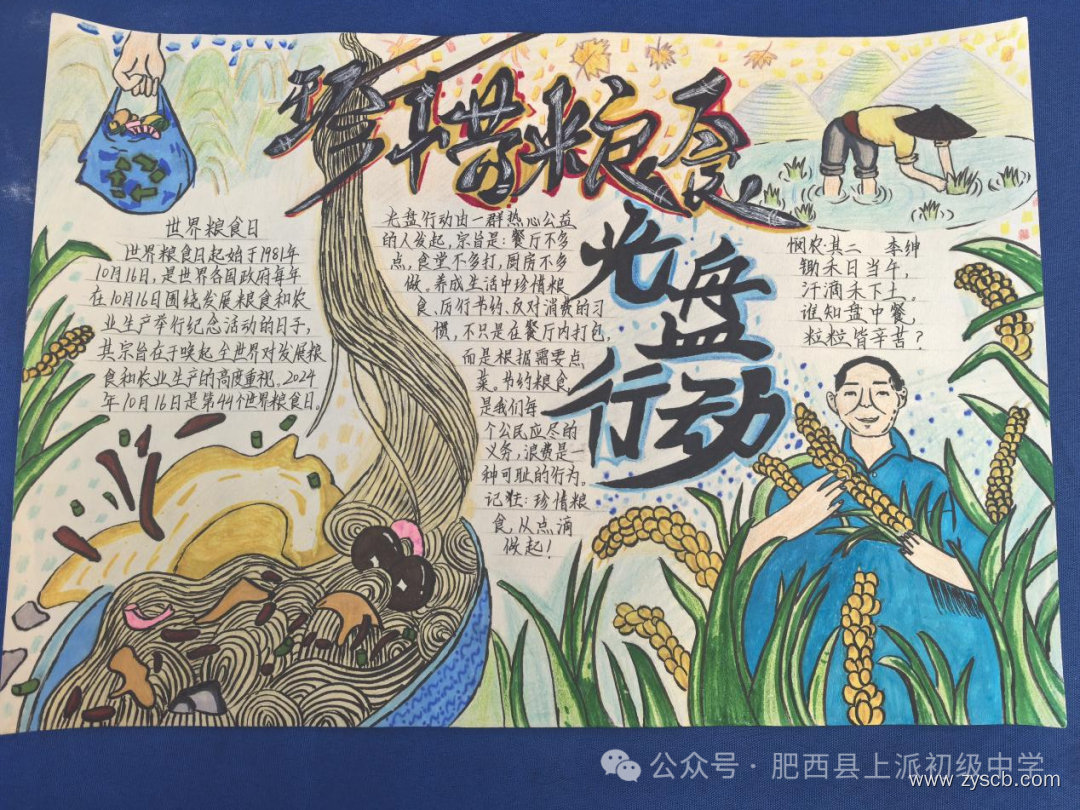 珍惜粮食
光盘
行动
世界粮食日
世界粮食日起始于1981年
10月16日,是世界各国政府每年
在10月16日围绕发展粮食和农
业生产举行纪念活动的日子,
其宗旨在于唤起全世界对发展粮
食和农业生产的高度重视。2024
年10月16日是第44个世界粮食日。
光盘行动由一群热心公益
的人发起,宗旨是:餐厅不多
点,食堂不多打,厨房不多
做。养成生活中珍惜粮
食、厉行节约、反对消费的习
惯,不只是在餐厅内打包,
而是根据需要点
菜。节约粮食,
是我们每
个公民应尽的
义务,浪费是一
种可耻的行为。
记住:珍惜粮
食,从点滴
做起!
悯农·其二 李绅
锄禾日当午,
汗滴禾下土。
谁知盘中餐,
粒粒皆辛苦?
公众号·肥西县上派初级中学
www.zyscb.com